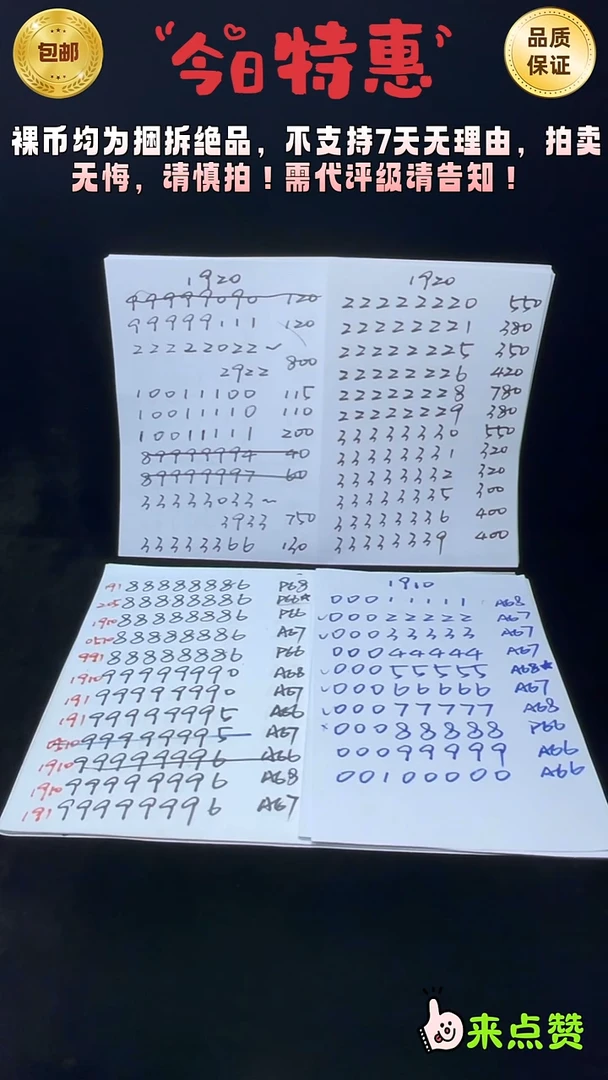 包邮
今日特惠
品质
保证
裸币均为捆拆绝品，不支持7天无理由，拍卖
无悔，请慎拍！需代评级请告知！
1920
99999090 120
99999111 120
22222022~
2922 800
10011100 115
10011110 110
10011111 200
89999994 40
89999997 60
33333033~
3933 750
33333366 130
1920
22222220 550
22222221 380
22222225 350
22222226 420
22222228 780
22222229 380
33333330 550
33333331 320
33333332 320
33333335 300
33333336 400
33333339 400
191 88888886 P68
205 88888886 P66★
1910 88888886 P66
0510 88888886 A67
991 88888886 P66
1910 99999990 A68
191 99999990 A67
191 99999995 A66
0510 99999995 A67
1910 99999996 A66
1910 99999996 A68
191 99999996 A67
1910
00011111 A68
√00022222 A67
√00033333 A67
00044444 A67
√00055555 A68★
√00066666 A67
√00077777 A68
×00088888 P66
00099999 A66
00100000 A66
来点赞